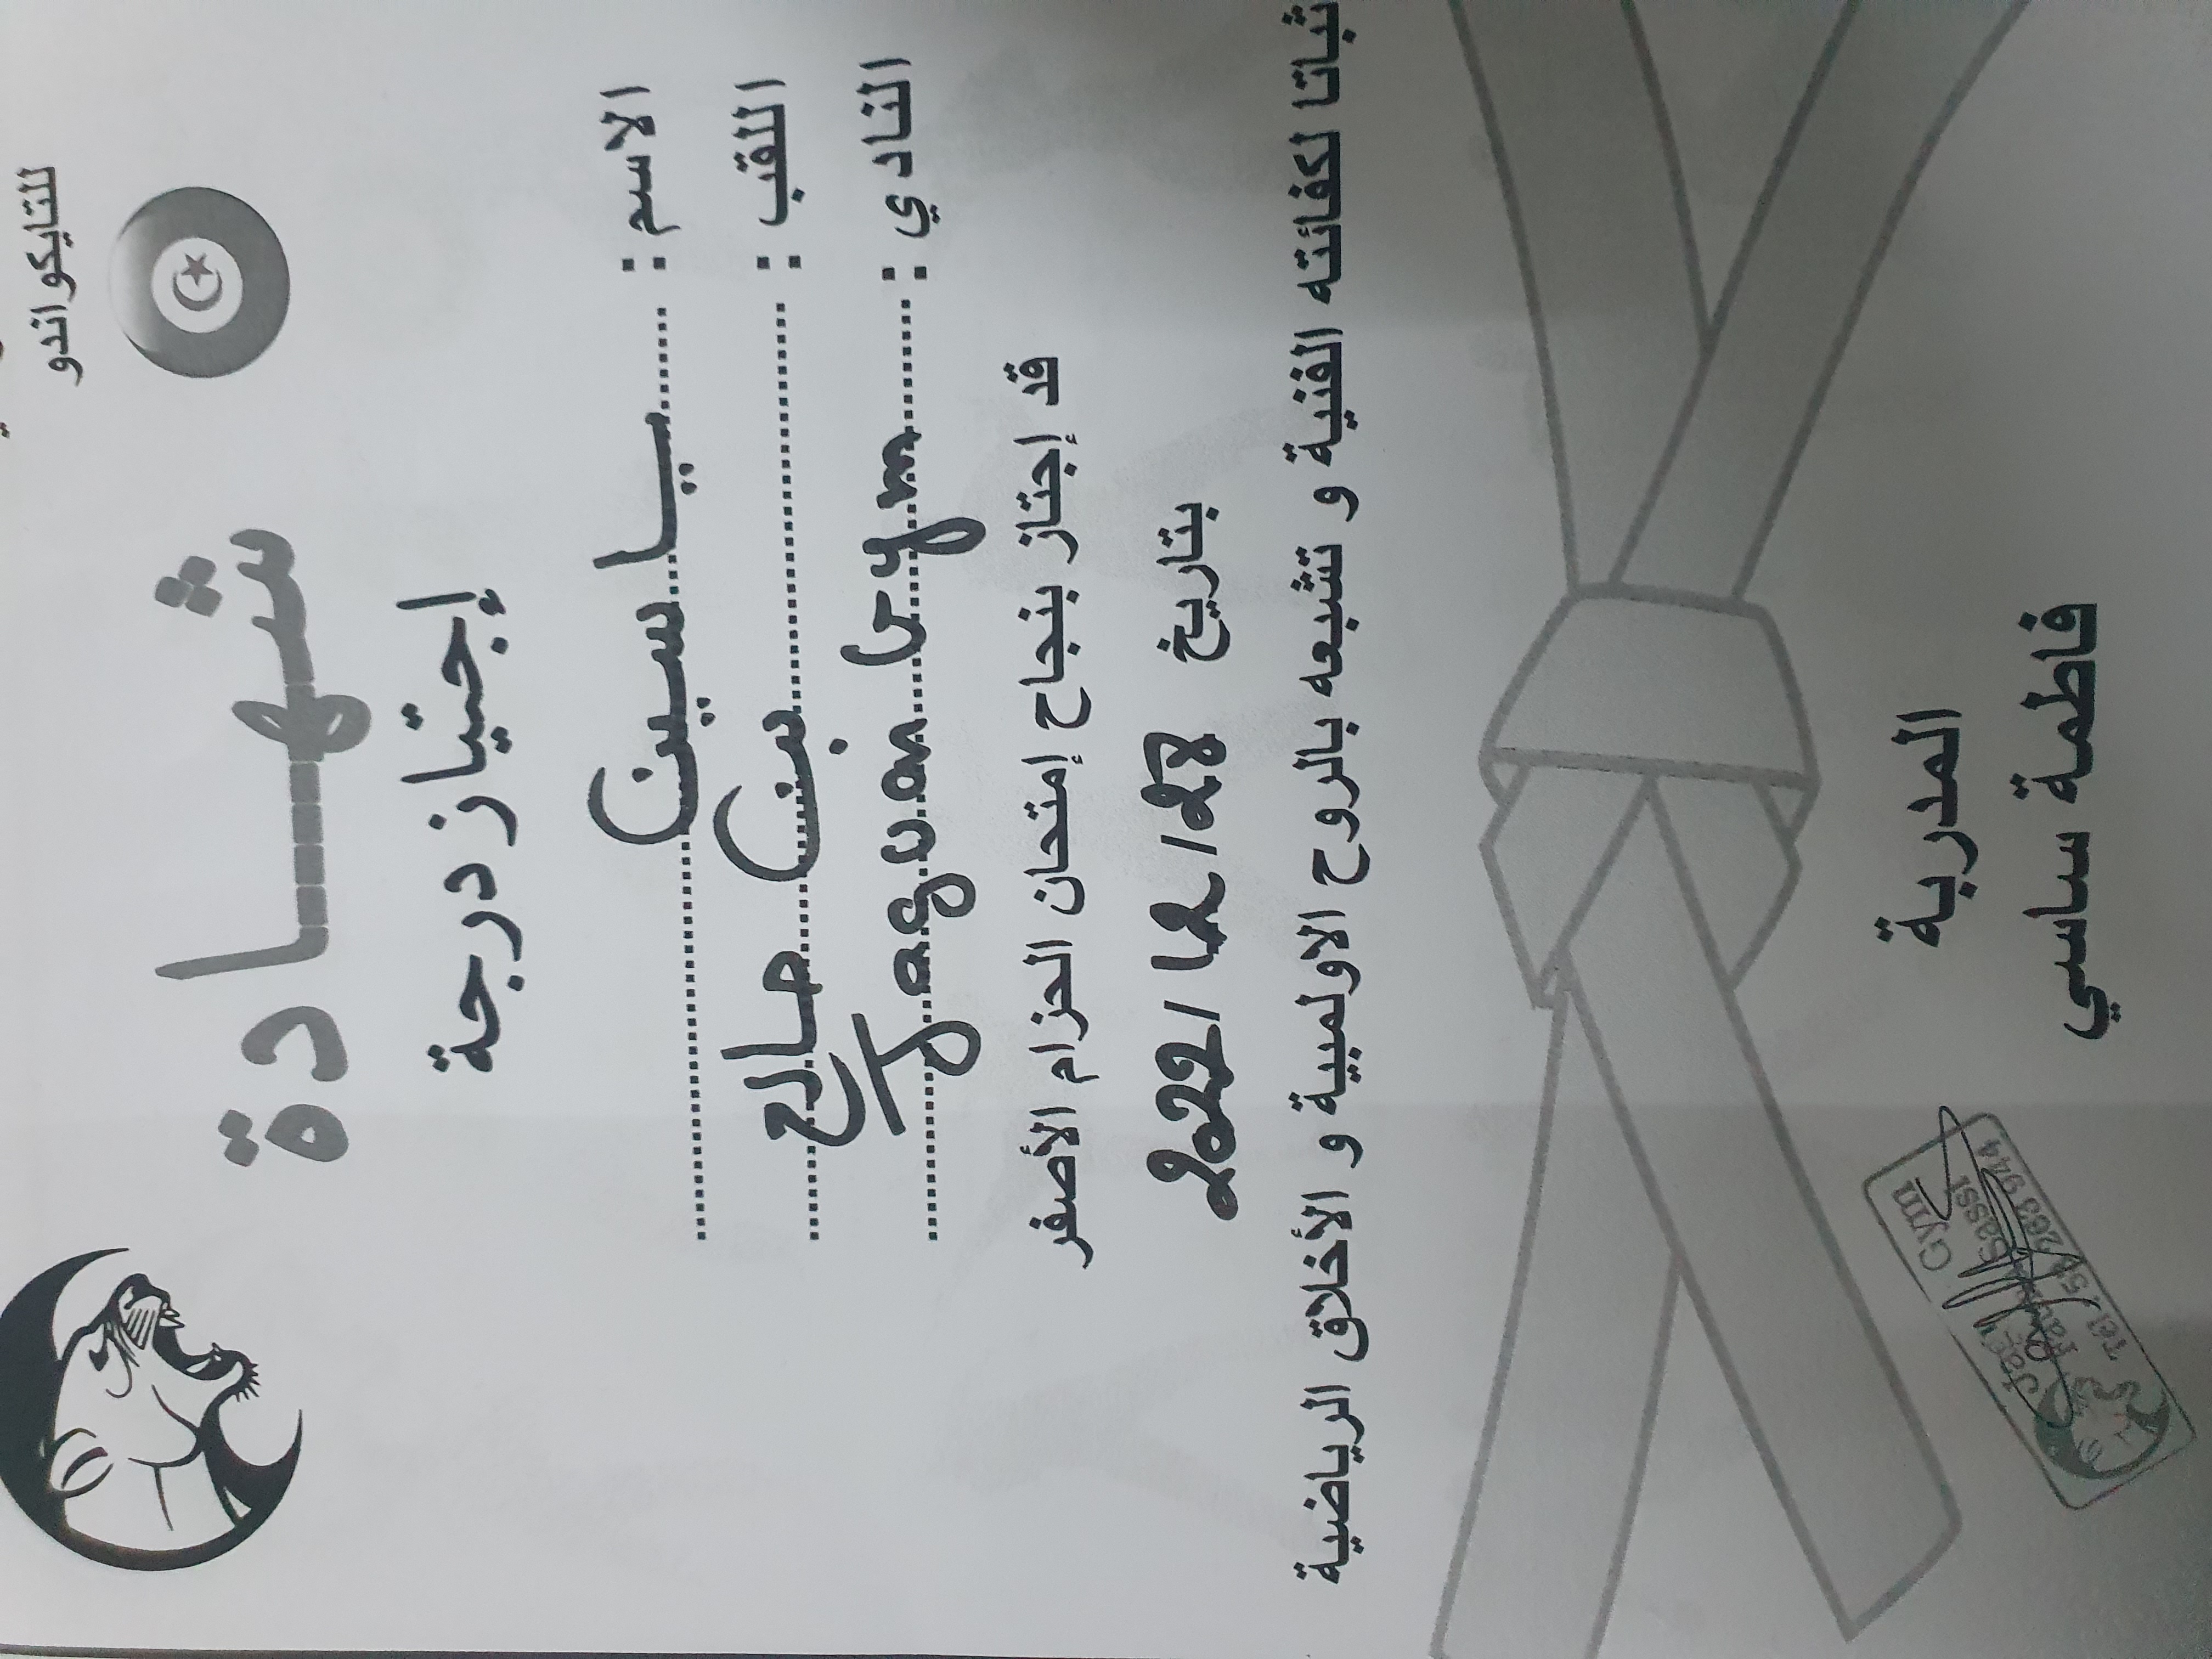 للتايكواندو
شهـــادة
إجتياز درجة
الاسم : ياسين
اللقب : بن صالح
النادي : Jaguan Gym
قد إجتاز بنجاح إمتحان الحزام الأصفر
بتاريخ 2022/12/28
ثباتا لكفائته الفنية و تشبعه بالروح الاولمبية و الأخلاق الرياضية
المدربة
فاطمة ساسي
Gym
Sassi
Tel. 263 944